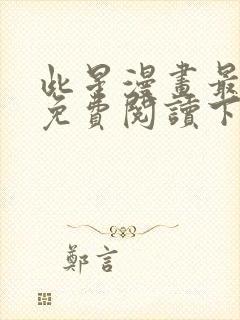 此星漫畫最
免費閱讀下
鄭言